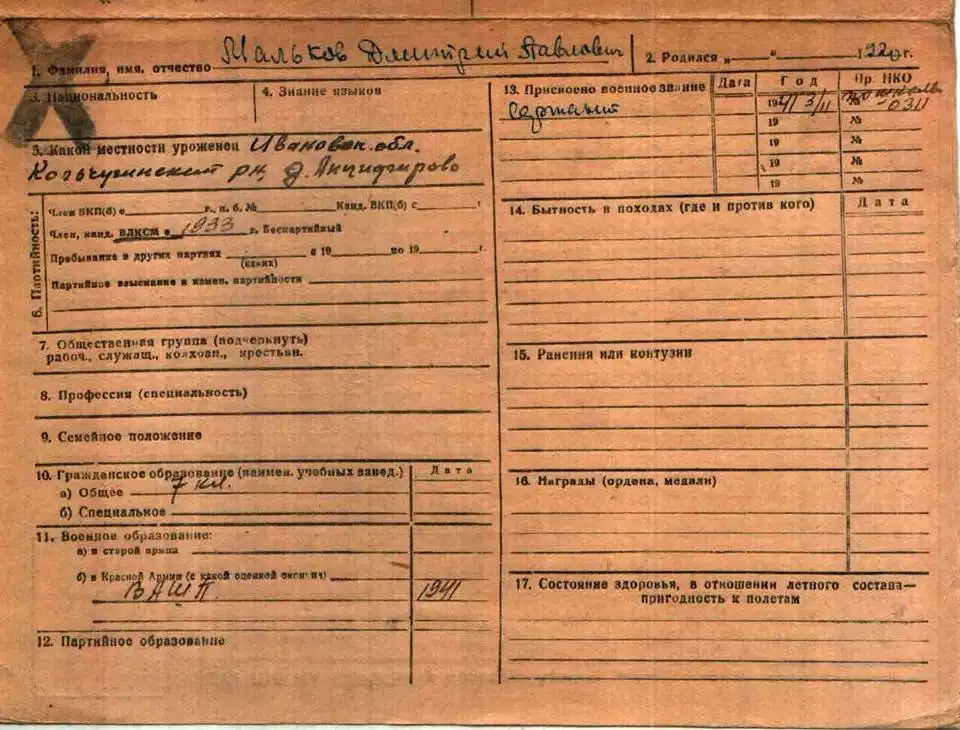 1. Фамилия, имя, отчество Мальков Дмитрий Павлович
2. Родился „ “ 1920 г.
3. Национальность
4. Знание языков
5. Какой местности уроженец Ивановск. обл.
Кольчугинский рн, д.
6. Партийность:
Член ВКП(б) с г., п. б. № Канд. ВКП(б) с г
Член, канд. ВЛКСМ с 1933 г. Беспартийный
Пребывание в других партиях с 19 по 19 г.
(каких)
Партийное взыскание и измен. партийности
7. Общественная группа (подчеркнуть)
рабоч., служащ., колхозн., крестьян.
8. Профессия (специальность)
9. Семейное положение
10. Гражданское образование (наимен. учебных завед.) Дата
а) Общее 7 кл.
б) Специальное
11. Военное образование:
а) в старой армии
б) в Красной Армии (с какой оценкой окончил)
ВАШП 1941
12. Партийное образование
13. Присвоено военное звание Дата Год Пр. НКО
Сержант 1941 3/11 № 0311
19 №
19 №
19 №
19 №
14. Бытность в походах (где и против кого) Дата
15. Ранения или контузии
16. Награды (ордена, медали)
17. Состояние здоровья, в отношении летного состава—
пригодность к полетам